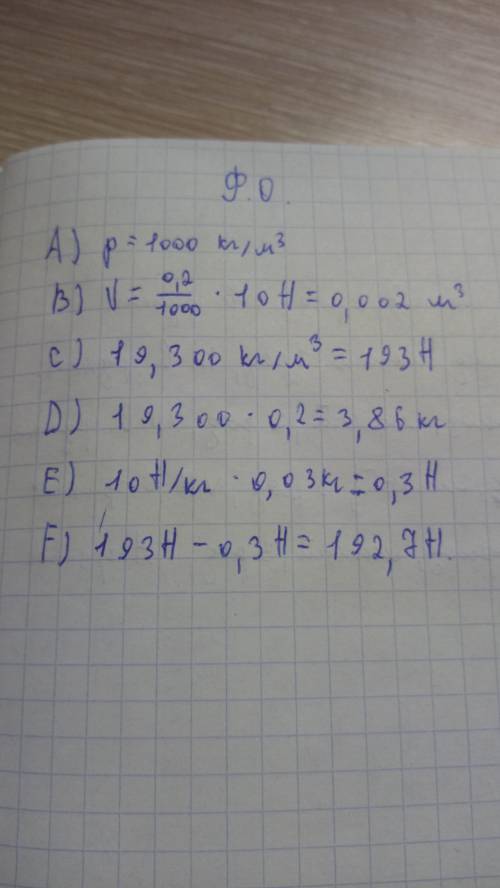 Ф.О.
A) p = 1000 кг/м³
B) V = 0,2/1000 · 10H = 0,002 м³
C) 19,300 кг/м³ = 193H
D) 19,300 · 0,2 = 3,86 кг
E) 10H/кг · 0,03кг = 0,3H
F) 193H - 0,3H = 192,7H.